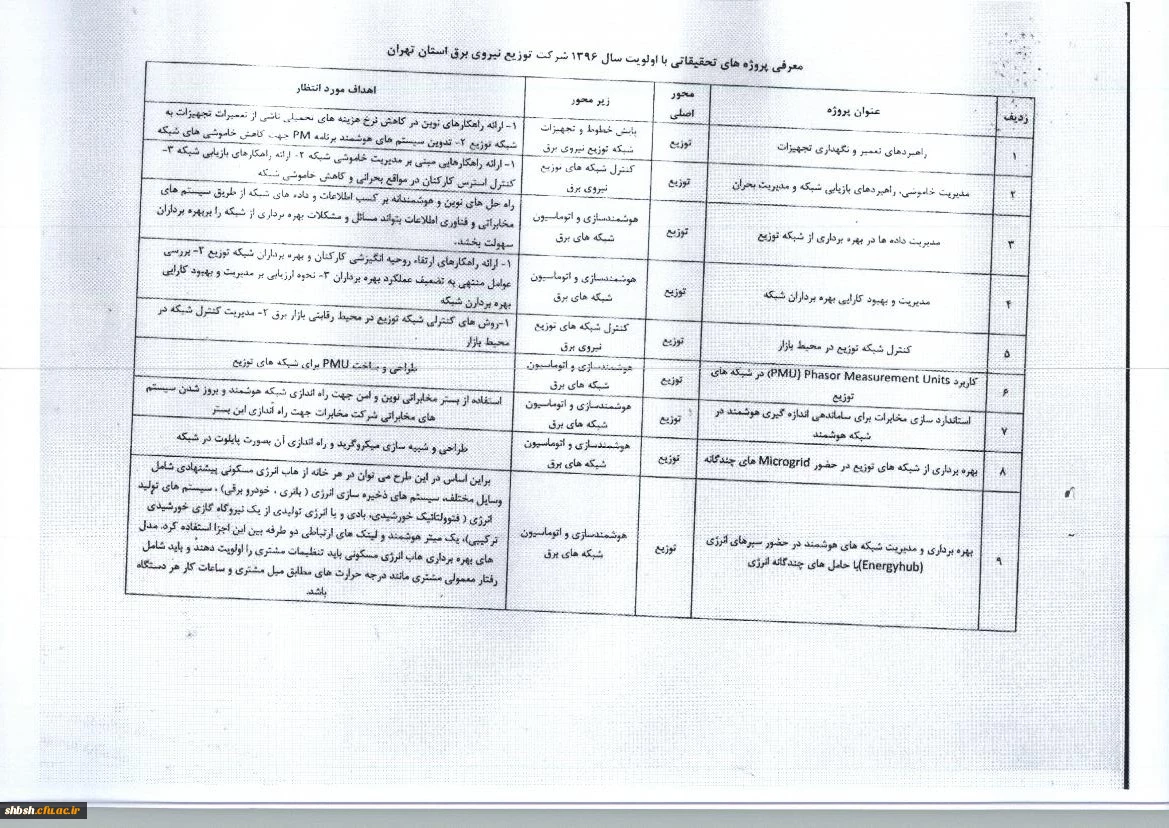 معرفی پروژه های تحقیقاتی با اولویت سال ۱۳۹۶ شرکت توزیع نیروی برق استان تهران
ردیف
عنوان پروژه
محور
اصلی
زیر محور
اهداف مورد انتظار
۱
راهبردهای تعمیر و نگهداری تجهیزات
توزیع
پایش خطوط و تجهیزات
شبکه توزیع نیروی برق
۱- ارائه راهکارهای نوین در کاهش نرخ هزینه های تحمیلی ناشی از تعمیرات تجهیزات به
شبکه توزیع ۲- تدوین سیستم های هوشمند برنامه PM جهت کاهش خاموشی های شبکه
۲
مدیریت خاموشی، راهبردهای بازیابی شبکه و مدیریت بحران
توزیع
کنترل شبکه های توزیع
نیروی برق
۱- ارائه راهکارهایی مبنی بر مدیریت خاموشی شبکه ۲- ارائه راهکارهای بازیابی شبکه ۳-
کنترل استرس کارکنان در مواقع بحرانی و کاهش خاموشی شبکه
۳
مدیریت داده ها در بهره برداری از شبکه توزیع
توزیع
هوشمندسازی و اتوماسیون
شبکه های برق
راه حل های نوین و هوشمندانه بر کسب اطلاعات و داده های شبکه از طریق سیستم های
مخابراتی و فناوری اطلاعات بتواند مسائل و مشکلات بهره برداری از شبکه را بربهره برداران
سهولت بخشد.
۴
مدیریت و بهبود کارایی بهره برداران شبکه
توزیع
هوشمندسازی و اتوماسیون
شبکه های برق
۱- ارائه راهکارهای ارتقاء روحیه انگیزشی کارکنان و بهره برداران شبکه توزیع ۲- بررسی
عوامل منتهی به تضعیف عملکرد بهره برداران ۳- نحوه ارزیابی بر مدیریت و بهبود کارایی
بهره بردارن شبکه
۵
کنترل شبکه توزیع در محیط بازار
توزیع
کنترل شبکه های توزیع
نیروی برق
۱-روش های کنترلی شبکه توزیع در محیط رقابتی بازار برق ۲- مدیریت کنترل شبکه در
محیط بازار
۶
کاربرد Phasor Measurement Units (PMU) در شبکه های
توزیع
توزیع
هوشمندسازی و اتوماسیون
شبکه های برق
طراحی و ساخت PMU برای شبکه های توزیع
۷
استاندارد سازی مخابرات برای ساماندهی اندازه گیری هوشمند در
شبکه هوشمند
توزیع
هوشمندسازی و اتوماسیون
شبکه های برق
استفاده از بستر مخابراتی نوین و امن جهت راه اندازی شبکه هوشمند و بروز شدن سیستم
های مخابراتی شرکت مخابرات جهت راه اندازی این بستر
۸
بهره برداری از شبکه های توزیع در حضور Microgrid های چندگانه
توزیع
هوشمندسازی و اتوماسیون
شبکه های برق
طراحی و شبیه سازی میکروگرید و راه اندازی آن بصورت پایلوت در شبکه
۹
بهره برداری و مدیریت شبکه های هوشمند در حضور سیرهای انرژی
(Energyhub)با حامل های چندگانه انرژی
توزیع
هوشمندسازی و اتوماسیون
شبکه های برق
براین اساس در این طرح می توان در هر خانه از هاب انرژی مسکونی پیشنهادی شامل
وسایل مختلف، سیستم های ذخیره سازی انرژی ( باتری ، خودرو برقی) ، سیستم های تولید
انرژی ( فتوولتائیک خورشیدی، بادی و یا انرژی تولیدی از یک نیروگاه گازی خورشیدی
ترکیبی)، یک میتر هوشمند و لینک های ارتباطی دو طرفه بین این اجزا استفاده کرد. مدل
های بهره برداری هاب انرژی مسکونی باید تنظیمات مشتری را اولویت دهند و باید شامل
رفتار معمولی مشتری مانند درجه حرارت های مطابق میل مشتری و ساعات کار هر دستگاه
باشد.
shbsh.cfu.ac.ir